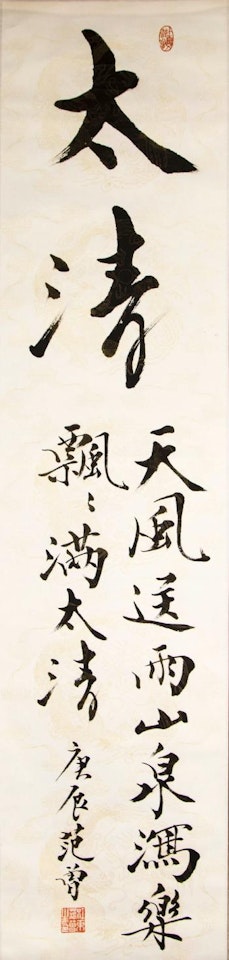 太清
天風送雨山泉瀉樂
飄〻滿太清
庚辰范曾